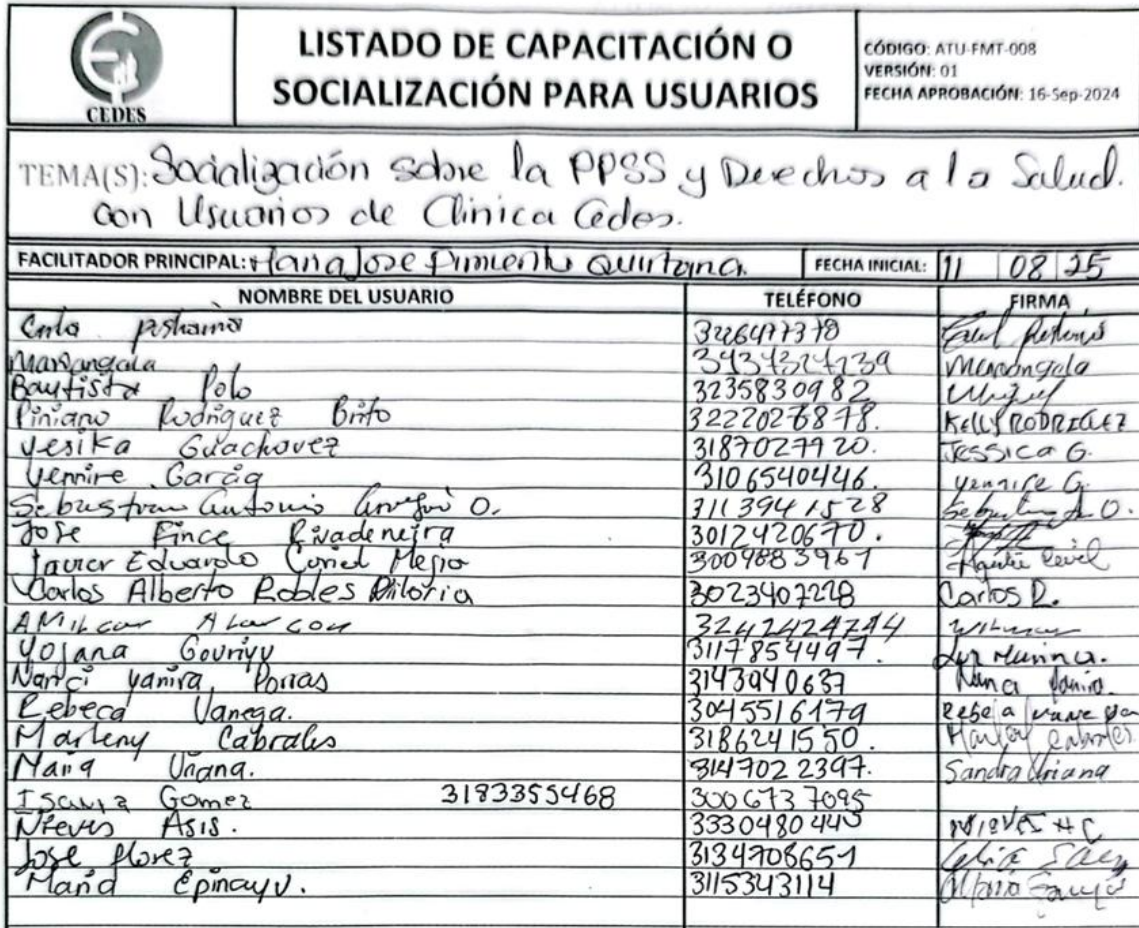 CEDES
LISTADO DE CAPACITACIÓN O
SOCIALIZACIÓN PARA USUARIOS
CÓDIGO: ATU-FMT-008
VERSIÓN: 01
FECHA APROBACIÓN: 16-Sep-2024
TEMA(S): Socialización sobre la PPSS y Derechos a la Salud.
con Usuarios de Clinica Cedes.
FACILITADOR PRINCIPAL: Maria Jose Pimienta Quintana. FECHA INICIAL: 11 08 25
NOMBRE DEL USUARIO TELÉFONO FIRMA
3226477378
Mariangela Mariangela
Bautista Polo 3235830982
Rodriguez Brito 3222026878. KELLY RODRIGUEZ
Yesika Guachovez 3187027720. JESSICA G.
Yennire Garcia 3106540446. Yennire G.
Sebastian Antonio O. 3113941528
Jose Pince Rivadeneira 3012420670.
Javier Eduardo Mejia 3004883967
Carlos Alberto Robles Viloria 3023407228 Carlos R.
AMilcar Alarcon
Yojana Gouriyu 3117854497.
Nanci Yanira Porras 3143940637
Rebeca Vanega. 3045516179
Marleny Cabrales 318624 1550.
Maria Uriana. 3147022397. Sandra Uriana
Gomez 3183355468 3006737095
Nieves Asis. 3330480445
Jose florez 3134708651
Maria Epinayu. 3115343114